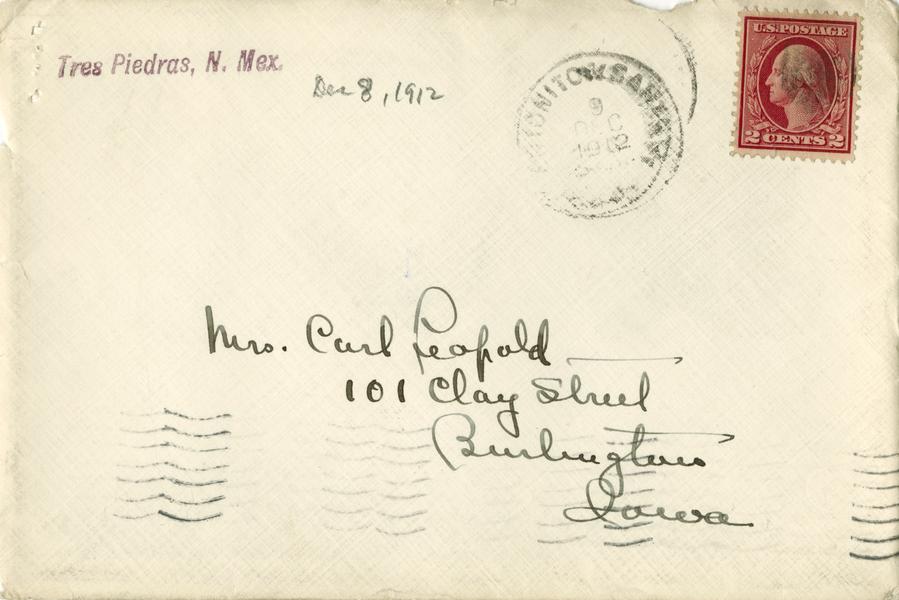 Tres Piedras, N. Mex.
Dec 8, 1912
U.S. POSTAGE
2 CENTS 2
Mrs. Carl Leopold
101 Clay Street
Burlington
Iowa